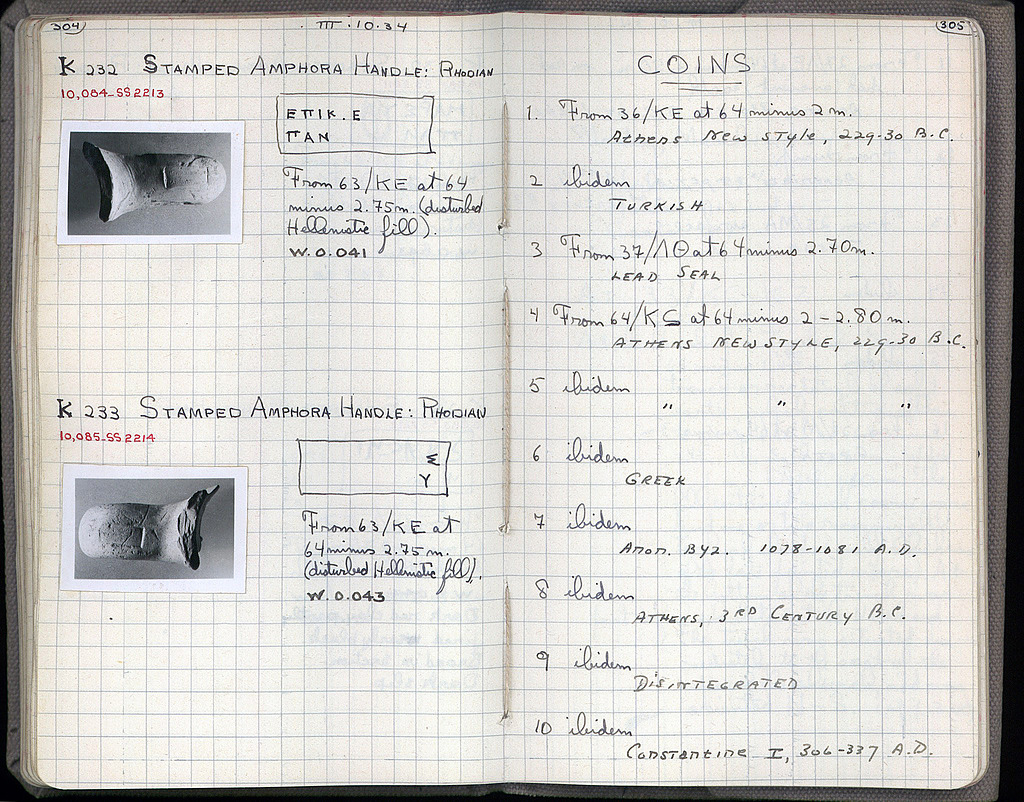 304
III·10·34
K 232 STAMPED AMPHORA HANDLE: RHODIAN
10,084-SS 2213
ΕΠΙΚ.Ε
ΠΑΝ
From 63/KE at 64
minus 2.75m. (disturbed
Hellenistic fill).
W.O.041
K 233 STAMPED AMPHORA HANDLE: RHODIAN
10,085-SS 2214
Σ
Υ
From 63/KE at
64 minus 2.75m.
(disturbed Hellenistic fill).
W.O.043
305
COINS
1. From 36/KE at 64 minus 2m.
Athens New Style, 229-30 B.C.
2 ibidem
TURKISH
3 From 37/ΛΘ at 64 minus 2.70m.
LEAD SEAL
4 From 64/KS at 64 minus 2-2.80m.
ATHENS NEW STYLE, 229-30 B.C.
5 ibidem
" " "
6 ibidem
GREEK
7 ibidem
Anon. Byz. 1078-1081 A.D.
8 ibidem
ATHENS, 3RD CENTURY B.C.
9 ibidem
DISINTEGRATED
10 ibidem
Constantine I, 306-337 A.D.